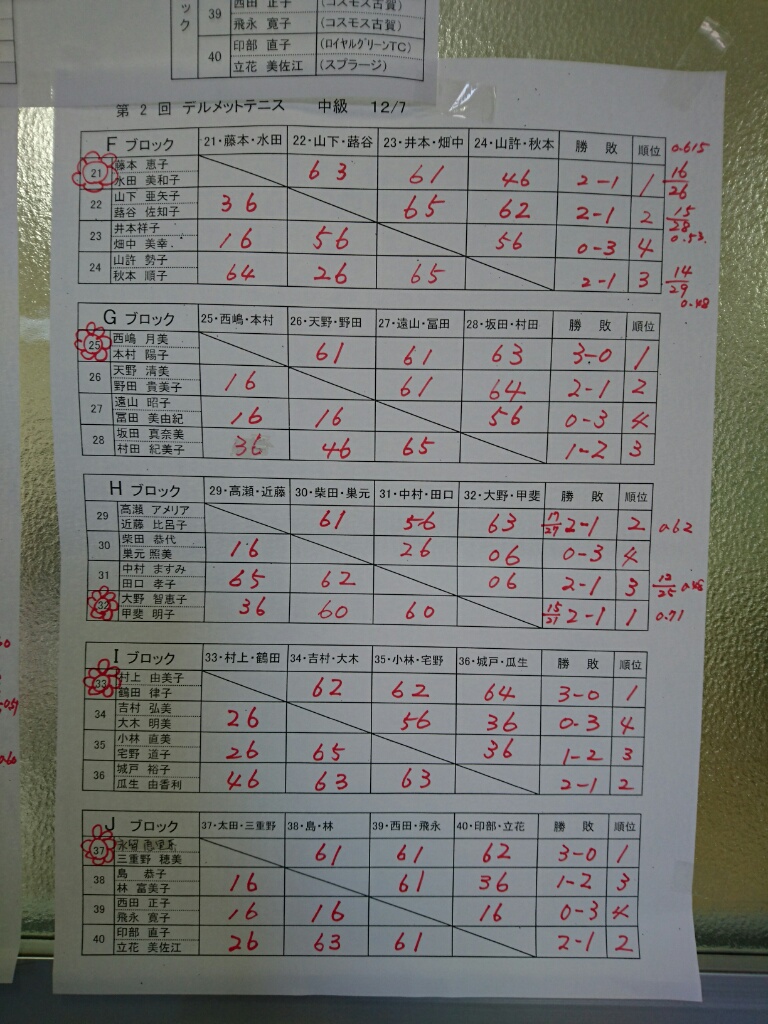 ック
39 西田 正子 (コスモス古賀)
飛永 寛子 (コスモス古賀)
40 印部 直子 (ロイヤルグリーンTC)
立花 美佐江 (スプラージ)
第 2 回 デルメットテニス 中級 12/7
F ブロック 21・藤本・水田 22・山下・蕗谷 23・井本・畑中 24・山許・秋本 勝 敗 順位 0.615
21 藤本 恵子 水田 美和子 63 61 46 2-1 1 16/26
22 山下 亜矢子 蕗谷 佐知子 36 65 62 2-1 2 15/28 0.53
23 井本祥子 畑中 美幸 16 56 56 0-3 4
24 山許 勢子 秋本 順子 64 26 65 2-1 3 14/29 0.48
G ブロック 25・西嶋・本村 26・天野・野田 27・遠山・冨田 28・坂田・村田 勝 敗 順位
25 西嶋 月美 本村 陽子 61 61 63 3-0 1
26 天野 清美 野田 貴美子 16 61 64 2-1 2
27 遠山 昭子 冨田 美由紀 16 16 56 0-3 4
28 坂田 真奈美 村田 紀美子 36 46 65 1-2 3
H ブロック 29・高瀬・近藤 30・柴田・巣元 31・中村・田口 32・大野・甲斐 勝 敗 順位
29 高瀬 アメリア 近藤 比呂子 61 56 63 17/27 2-1 2 0.62
30 柴田 恭代 巣元 照美 16 26 06 0-3 4
31 中村 ますみ 田口 孝子 65 62 06 2-1 3
32 大野 智恵子 甲斐 明子 36 60 60 15/21 2-1 1 0.71
I ブロック 33・村上・鶴田 34・吉村・大木 35・小林・宅野 36・城戸・瓜生 勝 敗 順位
33 村上 由美子 鶴田 律子 62 62 64 3-0 1
34 吉村 弘美 大木 明美 26 56 36 0-3 4
35 小林 直美 宅野 道子 26 65 36 1-2 3
36 城戸 裕子 瓜生 由香利 46 63 63 2-1 2
J ブロック 37・太田・三重野 38・島・林 39・西田・飛永 40・印部・立花 勝 敗 順位
37 三重野 穂美 61 61 62 3-0 1
38 島 恭子 林 富美子 16 61 36 1-2 3
39 西田 正子 飛永 寛子 16 16 16 0-3 4
40 印部 直子 立花 美佐江 26 63 61 2-1 2